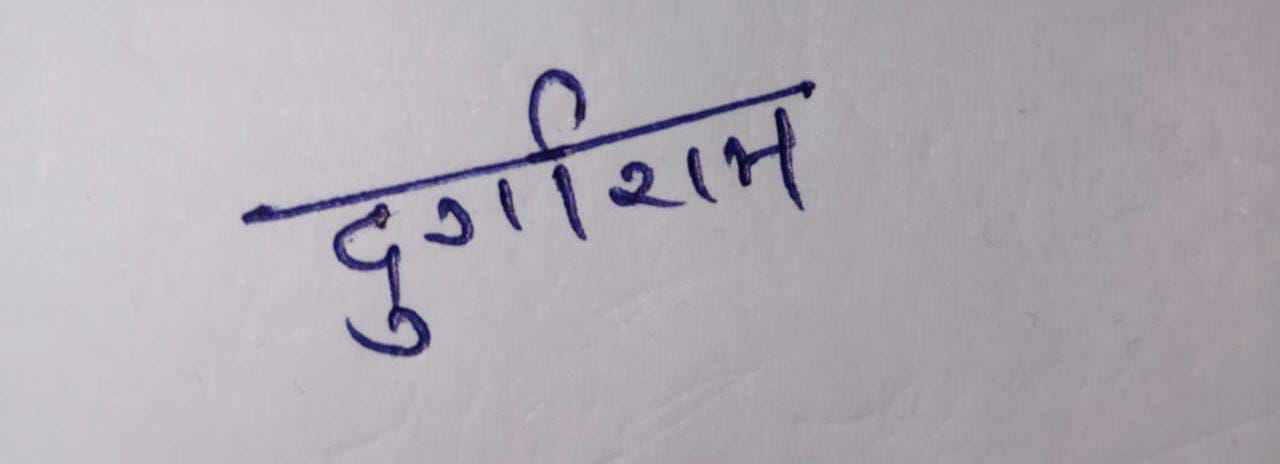 दुर्गाराम